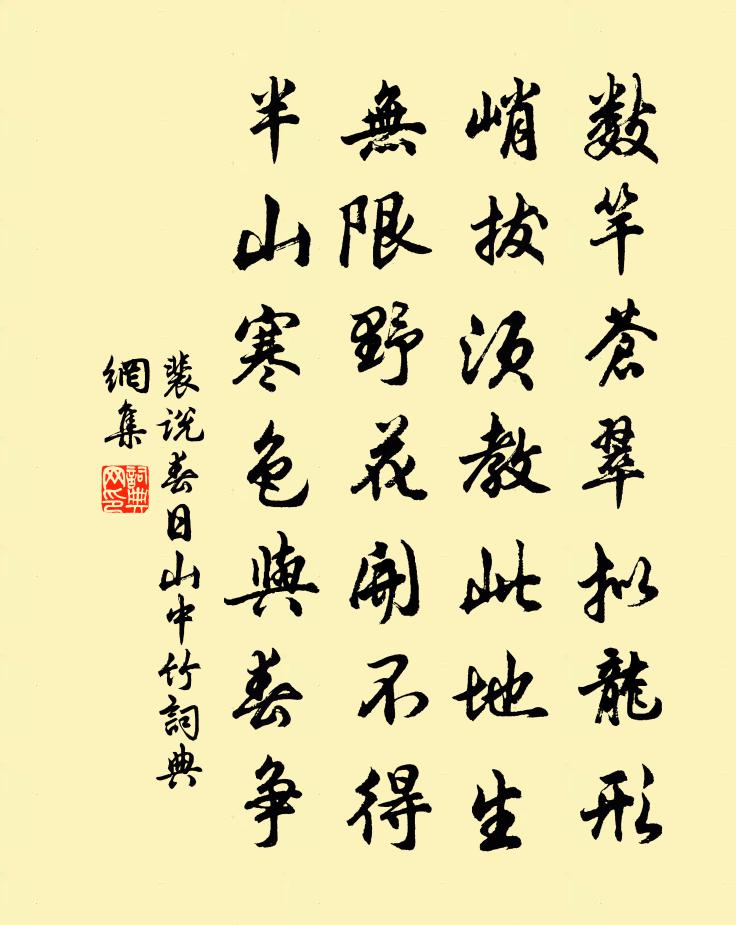 数竿蒼翠拟龍形
峭拔須教此地生
無限野花開不得
半山寒色與春争
裴说春日山中竹詞典
網集
詞典网印